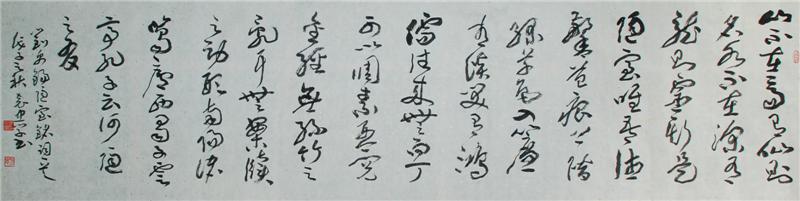 山不在高有仙則
名水不在深有
龍則靈斯是
陋室唯吾德
馨苔痕上階
綠草色入簾
青談笑有鴻
儒往來無白丁
可以調素琴閱
金經無絲竹之
亂耳無案牘
之勞形南陽諸
葛廬西蜀子雲
亭孔子云何陋
之有
劉禹錫陋室銘
戊子之秋